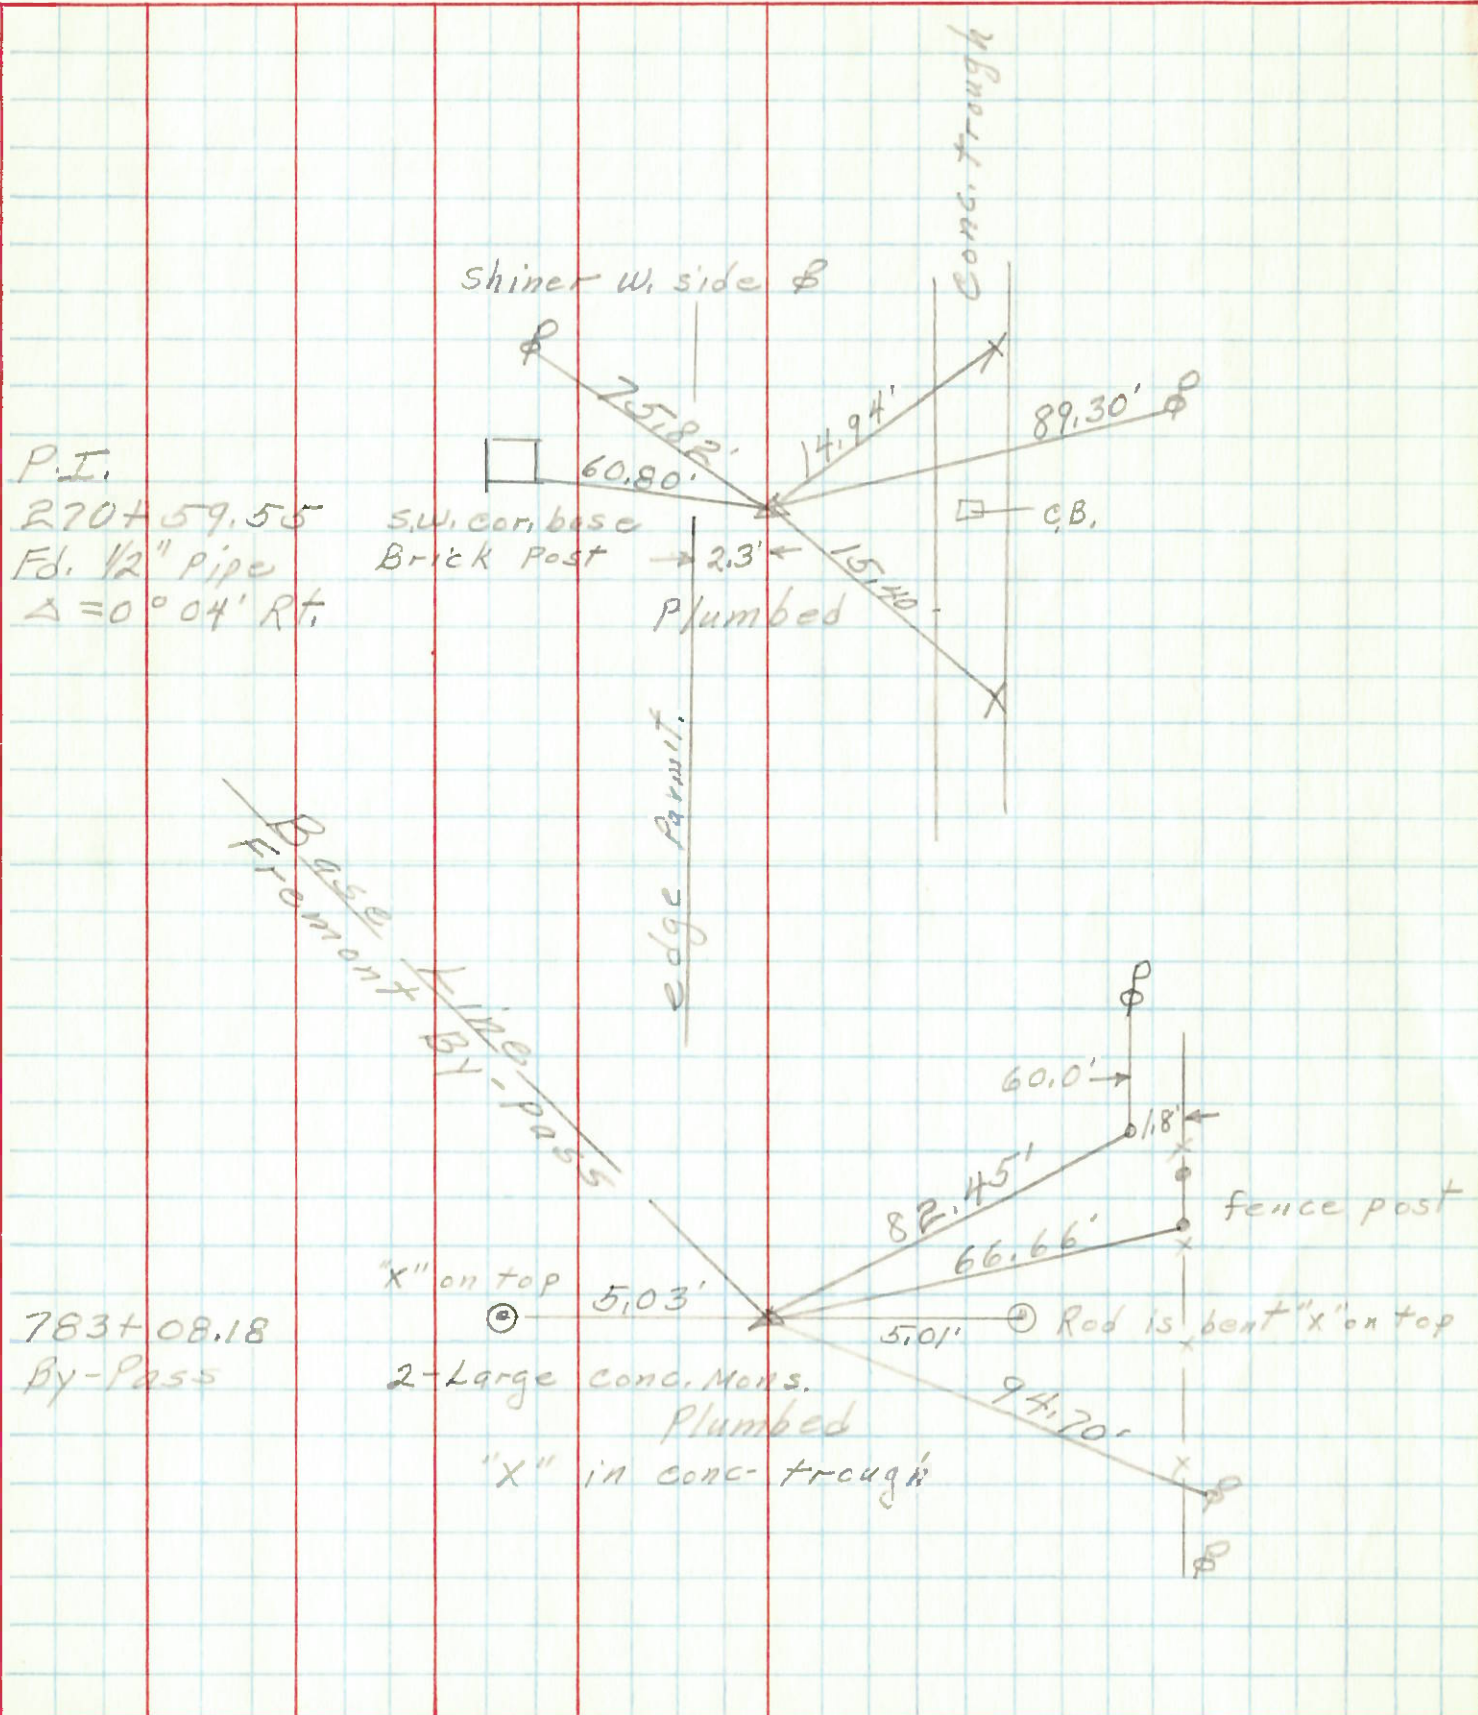 conc. trough
Shiner W. side
75.82'
14.94'
89.30'
60.80'
P.I.
270+59.55
Fd. 1/2" Pipe
Δ = 0° 04' Rt.
S.W. cor. base
Brick Post
2.3'
C.B.
15.40'
Plumbed
edge Pavm't.
Base Line
Fremont By-pass
60.0'
1.8'
82.45'
66.66'
fence post
"X" on top
5.03'
5.01'
Rod is bent "X" on top
783+08.18
By-Pass
2-Large conc. Mons.
94.70'
Plumbed
"X" in conc- trough